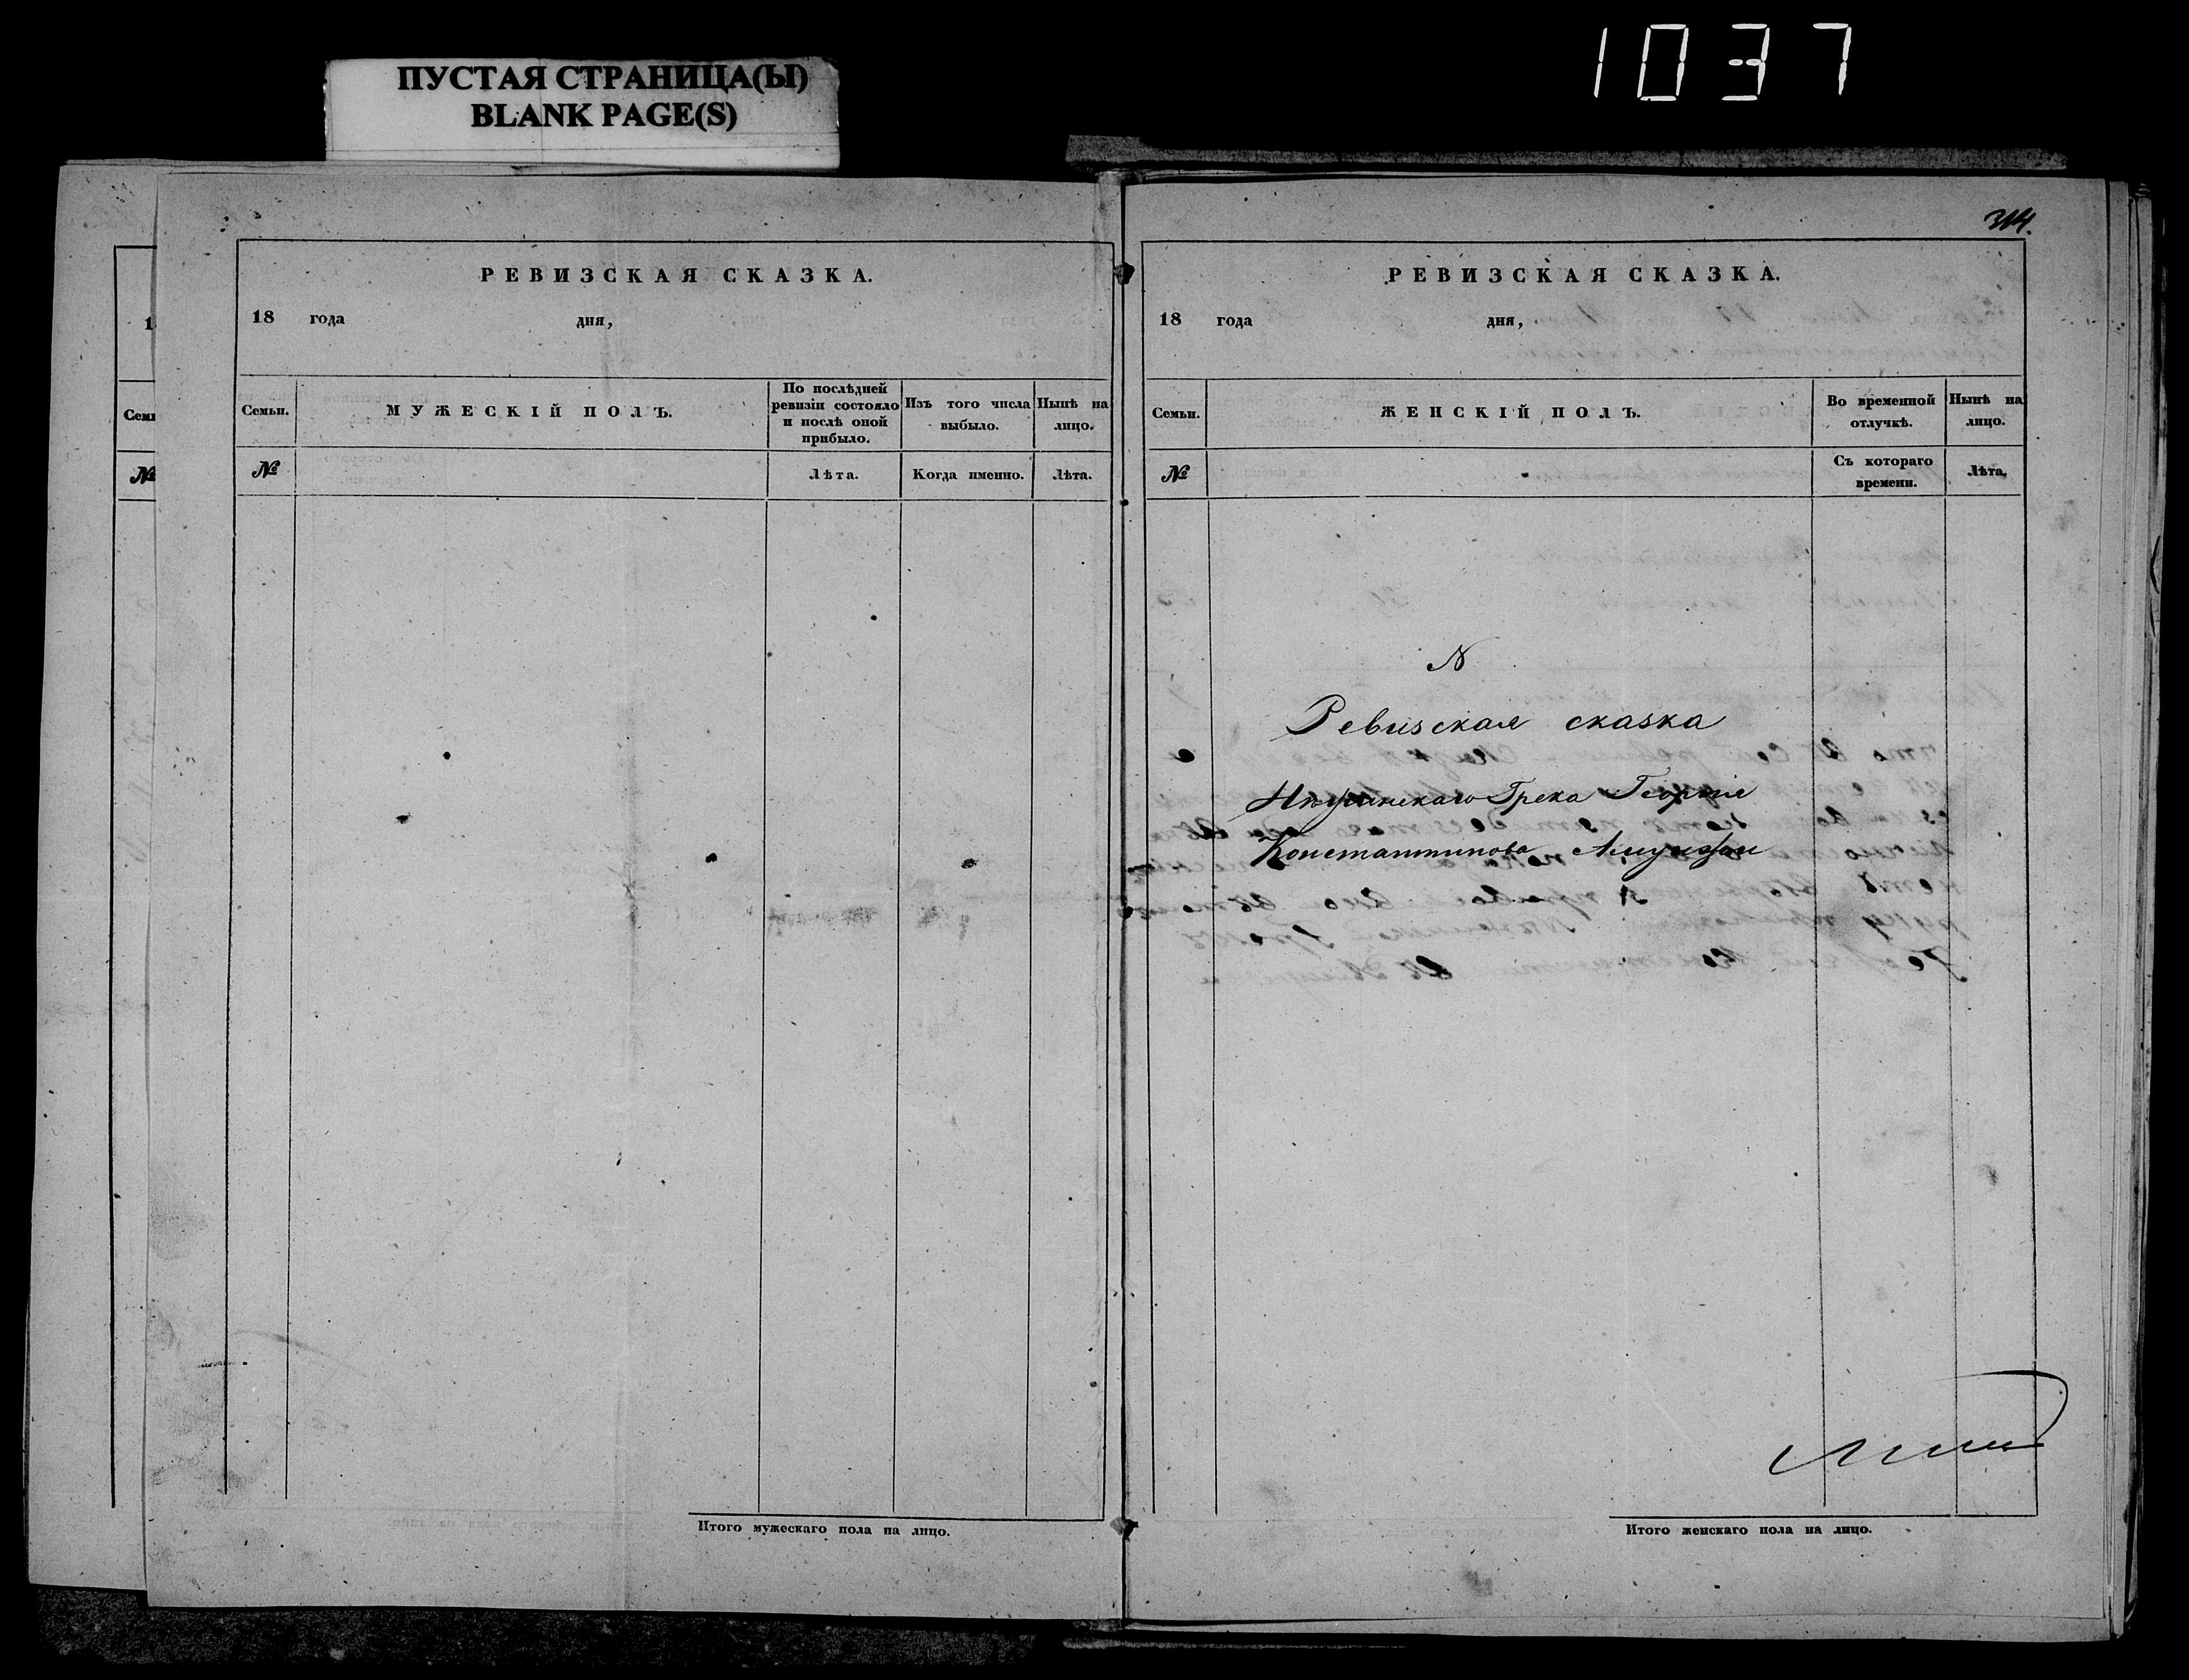 1037
ПУСТАЯ СТРАНИЦА(Ы)
BLANK PAGE(S)
РЕВИЗСКАЯ СКАЗКА.
18 года дня,
Семьи.
МУЖЕСКІЙ ПОЛЪ.
По послѣдней
ревизіи состояло
и послѣ оной
прибыло.
Изъ того числа
выбыло.
Нынѣ на
лицо.
№
Лѣта.
Когда именно.
Лѣта.
Итого мужескаго пола на лицо.
314.
РЕВИЗСКАЯ СКАЗКА.
18 года дня,
Семьи.
ЖЕНСКІЙ ПОЛЪ.
Во временной
отлучкѣ.
Нынѣ на
лицо.
№
Съ котораго
времени.
Лѣта.
N
Ревизская сказка
Нѣжинскаго Грека Георгія
Константинова
Итого женскаго пола на лицо.